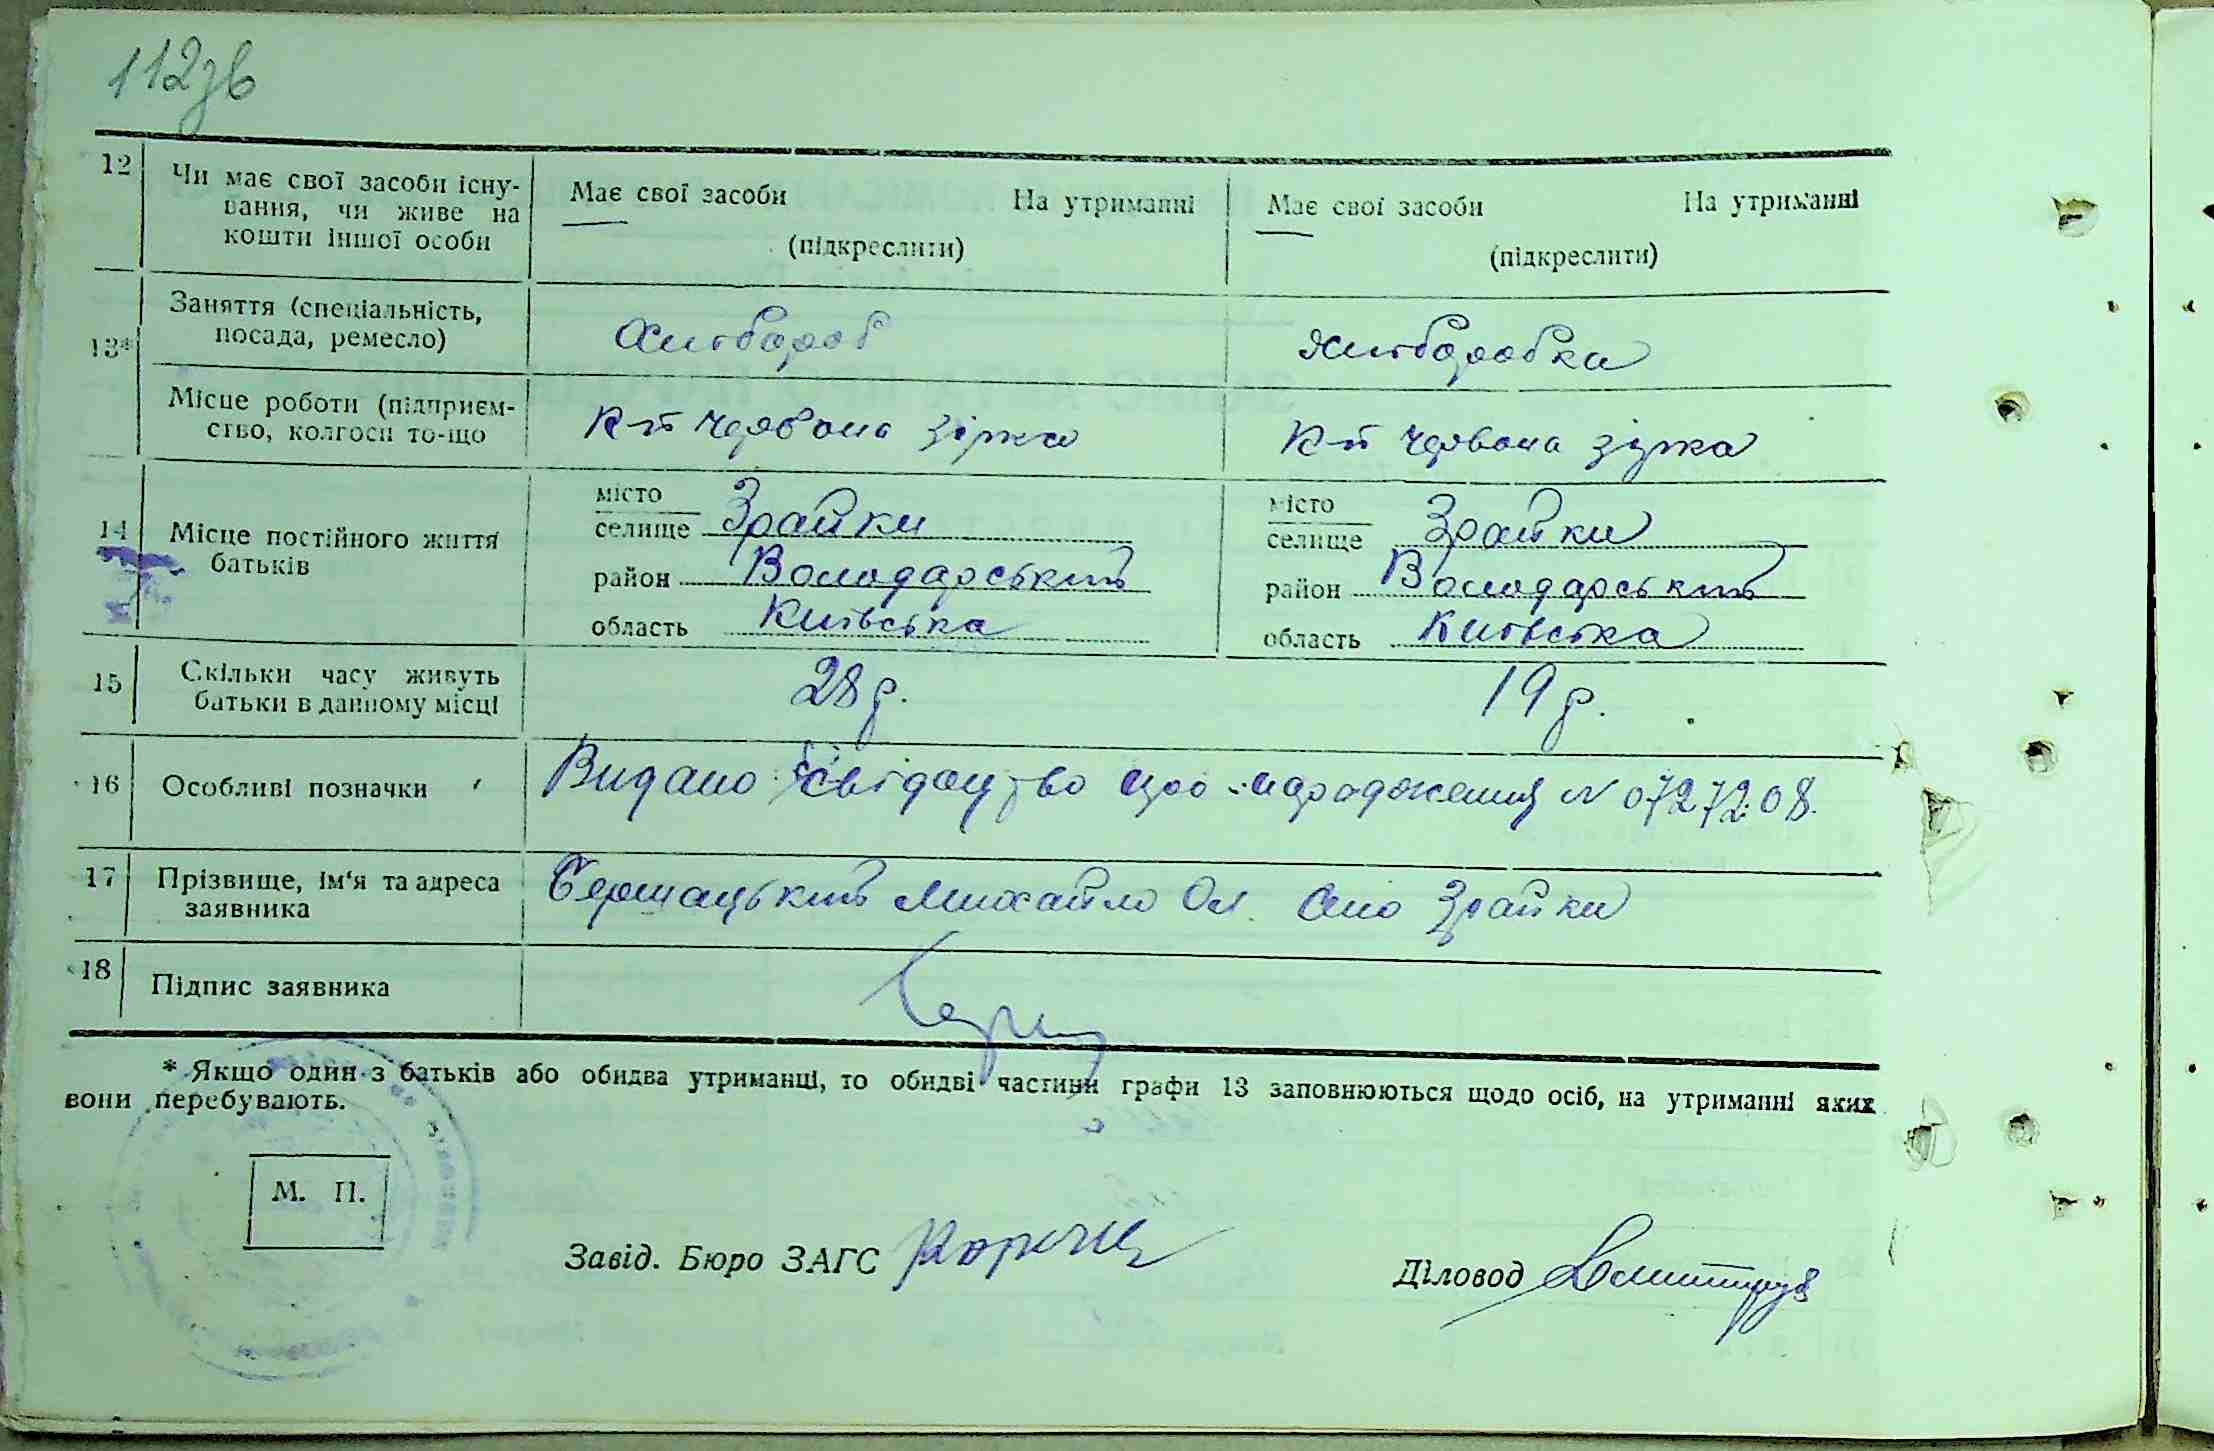 112зв
12 Чи має свої засоби існу-
вання, чи живе на
кошти іншої особи
Має свої засоби На утриманні
(підкреслити)
Має свої засоби На утриманні
(підкреслити)
13*
Заняття (спеціальність,
посада, ремесло)
Хлібороб
Хліборобка
Місце роботи (підприєм-
ство, колгосп то-що
К-п Червона зірка
К-п Червона зірка
14 Місце постійного життя
батьків
місто
селище Зрайки
район Володарський
область Київська
місто
селище Зрайки
район Володарський
область Київська
15 Скільки часу живуть
батьки в данному місці
28 р.
19 р.
16 Особливі позначки
Видано свідоцтво про народження N 07272.08.
17 Прізвище, ім'я та адреса
заявника
Михайло Ол. Село Зрайки
18 Підпис заявника
* Якщо один з батьків або обидва утриманці, то обидві частини графи 13 заповнюються щодо осіб, на утриманні яких
вони перебувають.
М. П.
Завід. Бюро ЗАГС
Діловод